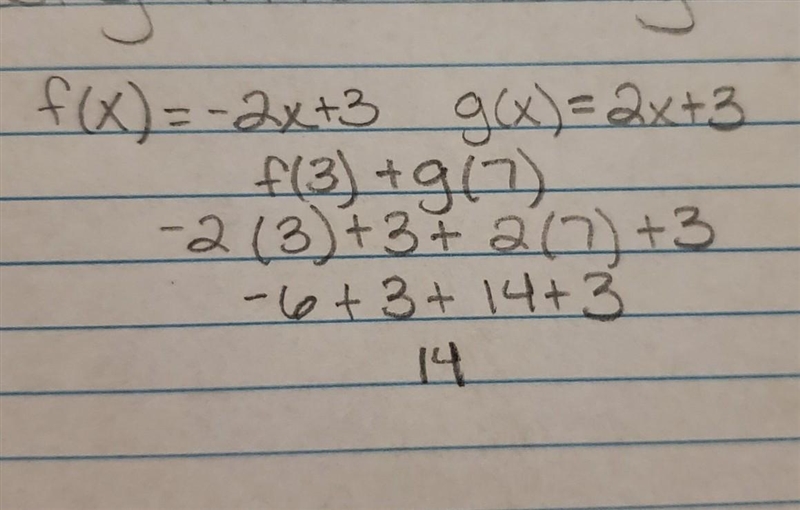 f(x) = -2x+3 g(x) = 2x+3
f(3) + g(7)
-2(3)+3+ 2(7)+3
-6+3+14+3
14